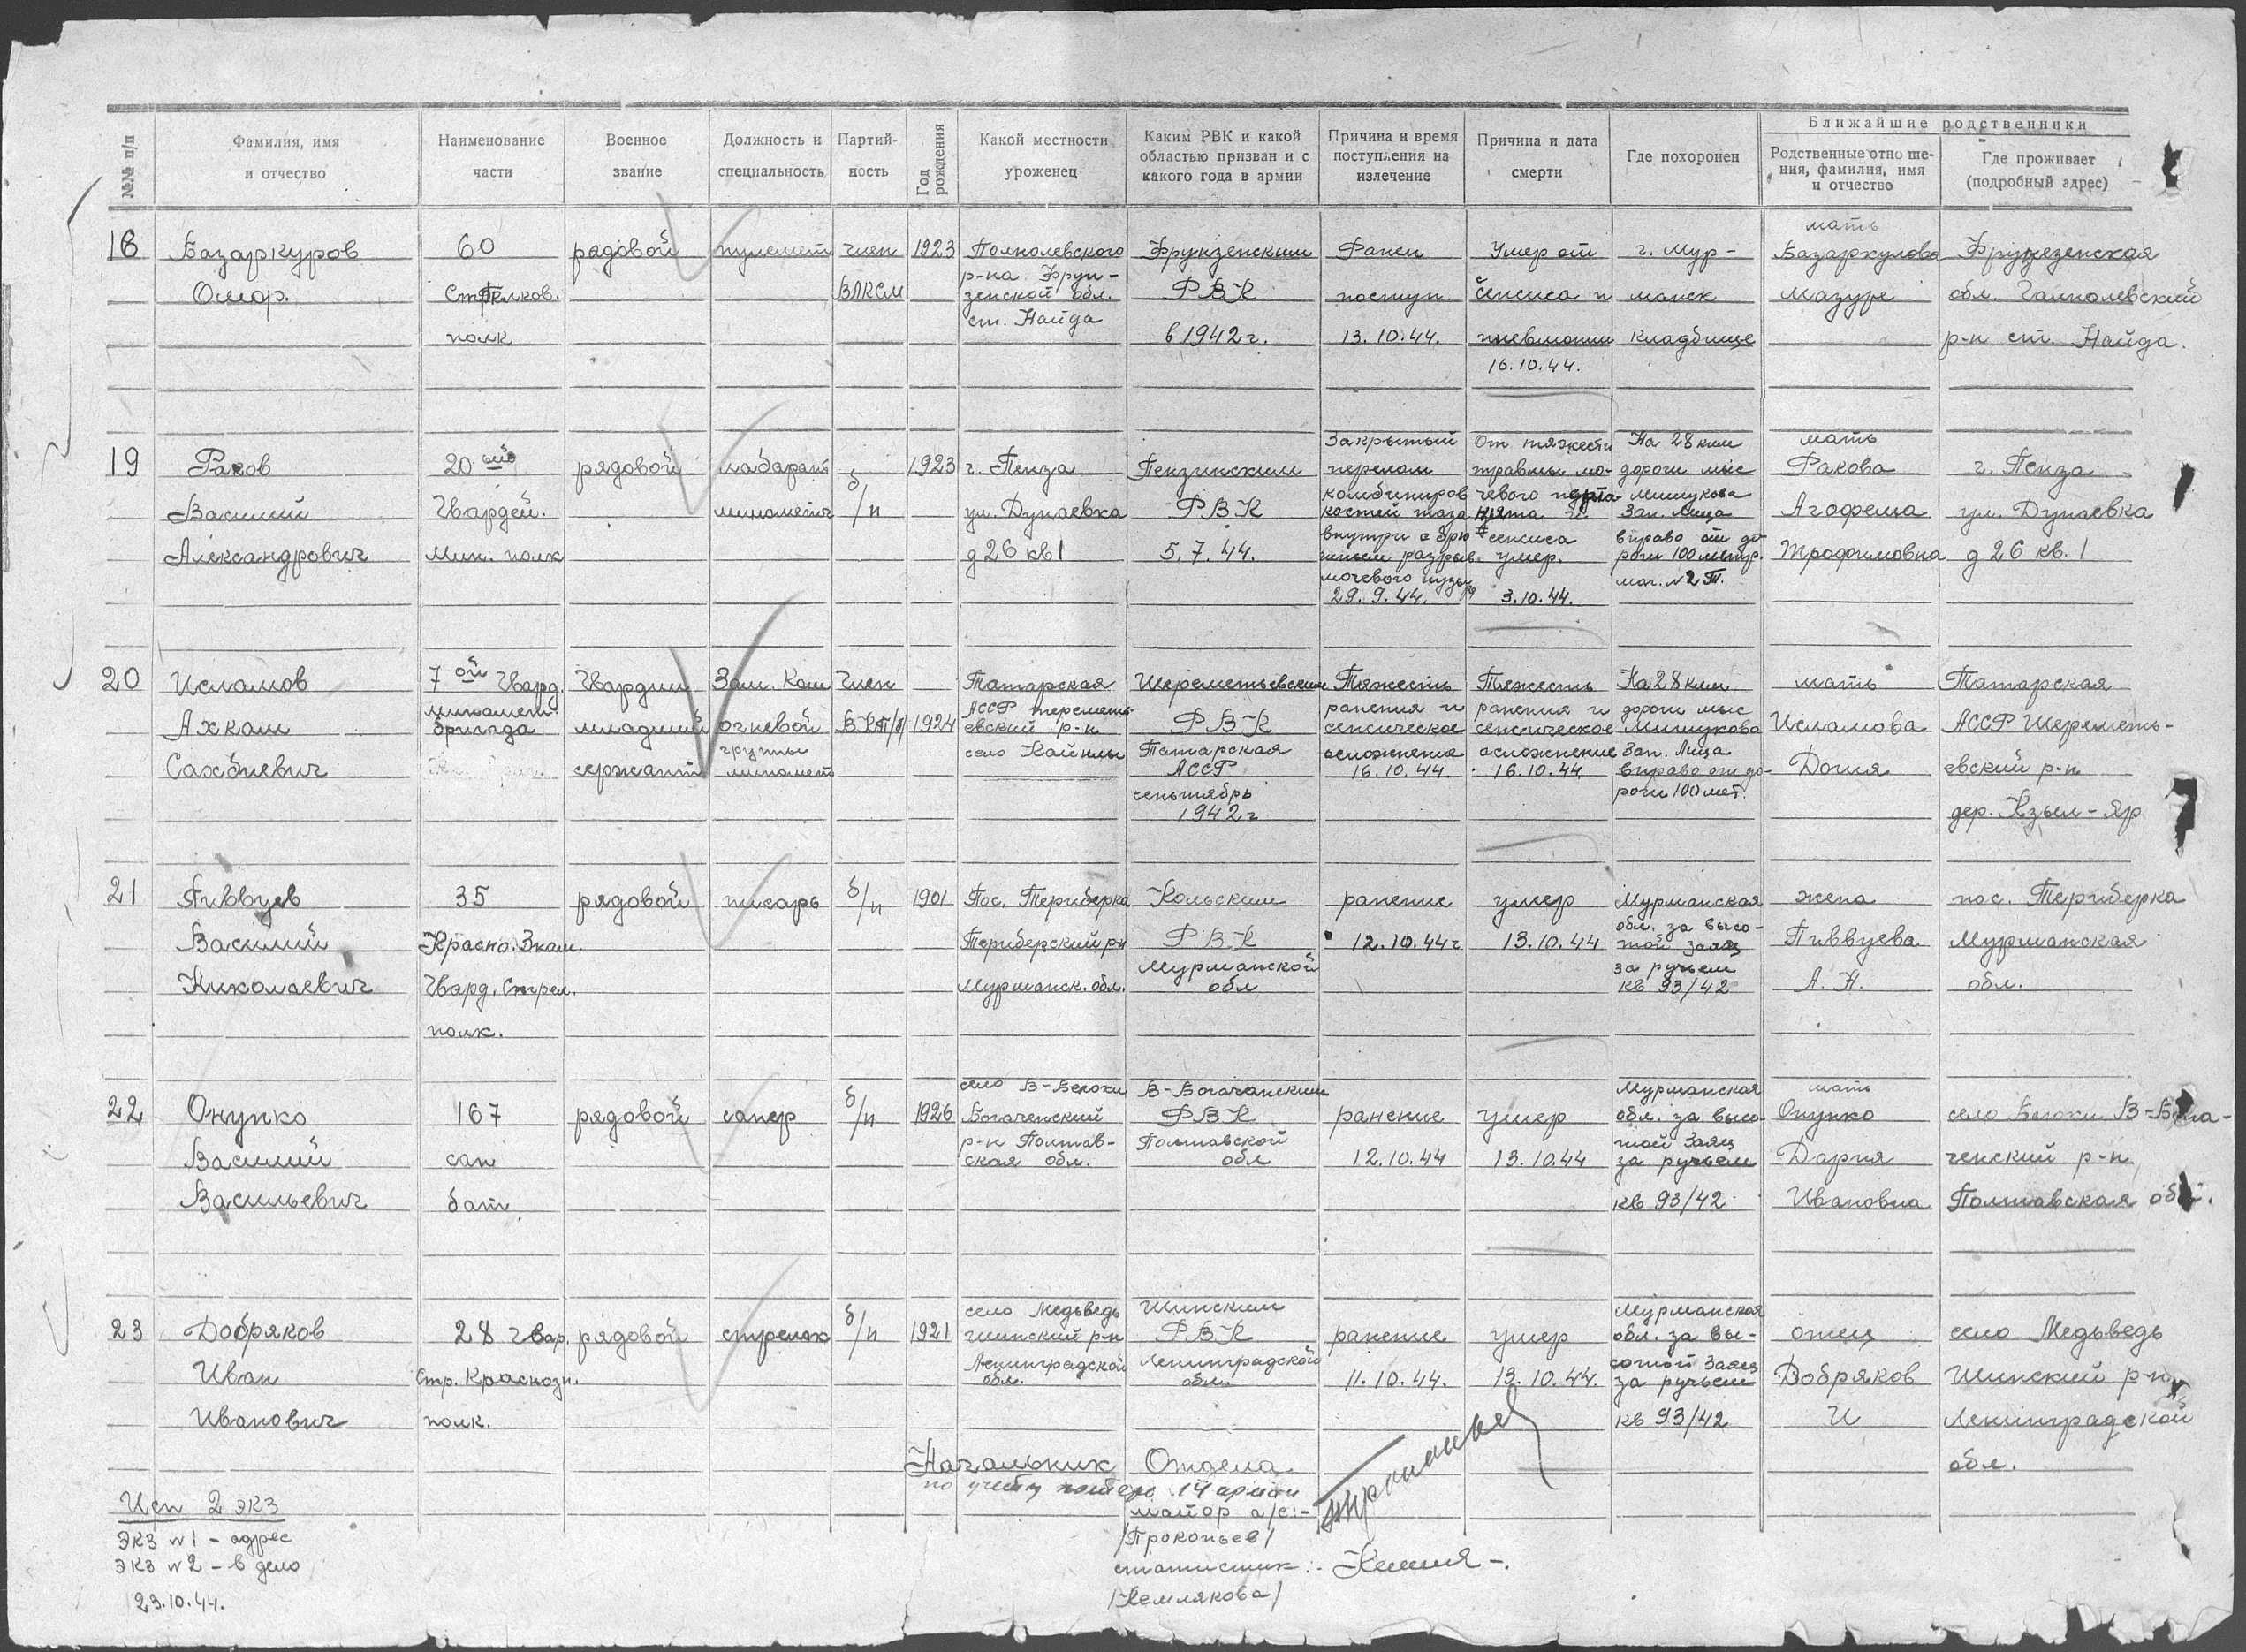 №№ п/п
Фамилия, имя
и отчество
Наименование
части
Военное
звание
Должность и
специальность
Партий-
ность
Год
рождения
Какой местности
уроженец
Каким РВК и какой
областью призван и с
какого года в армии
Причина и время
поступления на
излечение
Причина и дата
смерти
Где похоронен
Ближайшие родственники
Родственные отно ше-
ния, фамилия, имя
и отчество
Где проживает
(подробный адрес)
18
Базаркуров
Омор.
60
Стрелков.
полк
рядовой
пулемет
член
ВЛКСМ
1923
р-на Фрун-
зенской обл.
ст. Найда
Фрунзенским
РВК
в 1942 г.
Ранен
поступ.
13.10.44.
Умер от
сепсиса и
пневмонии
16.10.44.
г. Мур-
манск
кладбище
мать
Базаркулова
Мазуре
Фрунзенская
обл.
р-н ст. Найда.
19
Раков
Василий
Александрович
20
Гвардей.
Мин. полк
рядовой
миномётч
б/п
1923
г. Пенза
ул. Дунаевка
д 26 кв 1
Пензинским
РВК
5.7.44.
Закрытый
перелом
комбиниров
костей таза
внутри а брю
шным разрыв.
мочевого пузы
ря
29.9.44.
От тяжести
травмы мо-
чевого
сепсиса
умер.
3.10.44.
На 28 клм
дороги мыс
Мишукова
Зап. Лица
вправо от до-
роги 100 метр.
мог. №2 Т.
мать
Ракова
Агофеша
Трофимовна
г. Пенза
ул. Дунаевка
д 26 кв. 1
20
Исламов
Ахкам
Сахбиевич
7 ой Гвард.
миномет.
бригада
Гвардии
младший
сержант
Зам. Ком
огневой
группы
миномет
Член
ВКП/б/
1924
Татарская
АССР шереметь-
евский р-н
село Кайнлы
Шереметьевским
РВК
Татарская
АССР
сентябрь
1942 г
Тяжесть
ранения и
сепсическое
осложнения
16.10.44.
Тяжесть
ранения и
сепсическое
осложнение
16.10.44
На 28 клм
дороги мыс
Мишукова
Зап. Лица
вправо от до-
роги 100 мет.
мать
Исламова
Догия
Татарская
АССР Шереметь-
евский р-н
дер. Кзыл-Яр
21
Пиввуев
Василий
Николаевич
35
Красно.Знам.
Гвард. Стрел.
полк.
рядовой
писарь
б/п
1901
Пос. Териберка
Териберский р-н
Мурманск. обл.
Кольским
РВК
Мурманской
обл
ранение
12.10.44 г
умер
13.10.44
Мурманская
обл. за высо-
той Заяц
за ручьем
кв 93/42
жена
Пиввуева
А. Н.
пос. Териберка
Мурманская
обл.
22
Онупко
Василий
Васильевич
167
сап
бат
рядовой
сапер
б/п
1926
село В-Белоки
Богаченский
р-н Полтав-
ская обл.
В-Богачанским
РВК
Полтавской
обл
ранение
12.10.44
умер
13.10.44
Мурманская
обл. за высо-
той Заяц
за ручьем
кв 93/42
мать
Онупко
Дария
Ивановна
село Белоки В-Бога-
ченский р-н
Полтавская обл.
23
Добряков
Иван
Иванович
28 Гвар.
стр. Краснозн.
полк.
рядовой
стрелок
б/п
1921
село Медьведь
шимский р-н
Ленинградской
обл.
Шимским
РВК
Ленинградской
обл.
ранение
11.10.44.
умер
13.10.44.
Мурманская
обл. за вы-
сотой Заяц
за ручьем
кв 93/42
отец
Добряков
И
село Медьведь
Шимский р-н
Ленинградской
обл.
Начальник Отдела
по учету потерь 14 армии
майор а/с:-
/Прокопьев/
статистик:-
/Кемлякова/
Исп 2 экз
экз №1 - адрес
экз №2 - в дело
23.10.44.